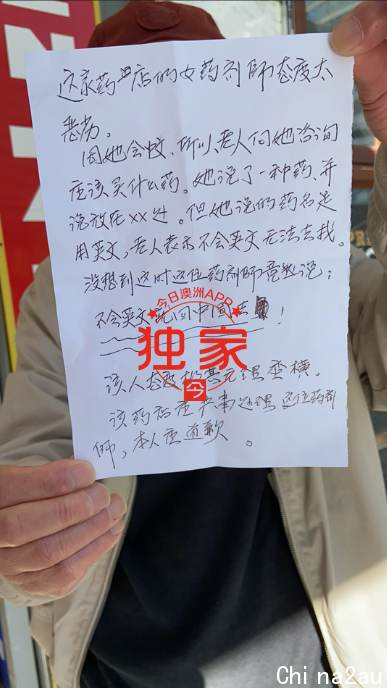 这家药店的女药剂師态度太
恶劣。
因她会中文、所以老人向她咨询
应该买什么药。她说了一种药、并
说放在xx处。但她说的药名是
用英文,老人表示不会英文无法去找。
没想到这时这位药剂师竟然说:
今日澳洲APP
不会英文就回中国去!
独家
该人态度极其无理蛮横。
今
该药店应严肃处理这位药剂
师,本人应道歉。
Chi na2au